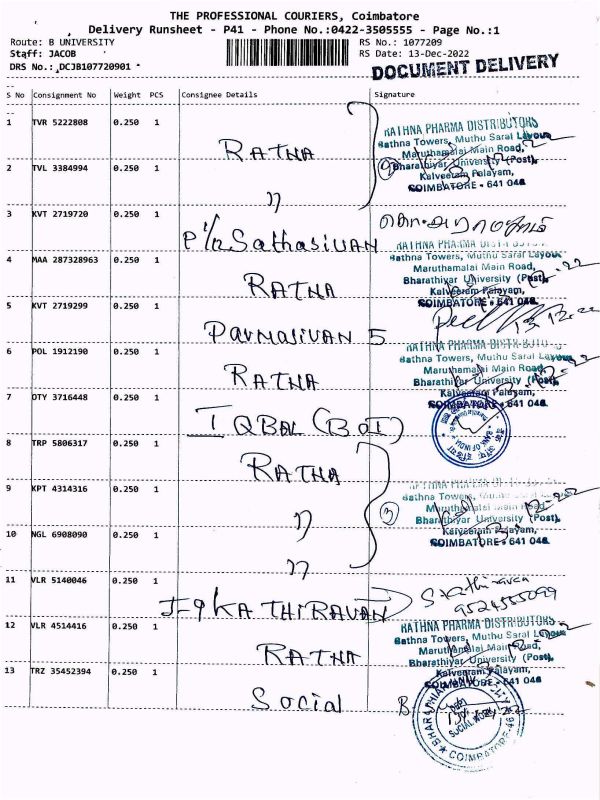 THE PROFESSIONAL COURIERS, Coimbatore
Delivery Runsheet - P41 - Phone No.:0422-3505555 - Page No.:1
Route: B UNIVERSITY
RS No.: 1077209
Staff: JACOB
RS Date: 13-Dec-2022
DRS No.: DCJB107720901
DOCUMENT DELIVERY
S No Consignment No Weight PCS Consignee Details Signature
1 TVR 5222808 0.250 1
RATNA
RATHNA PHARMA DISTRIBUTORS
Rathna Towers, Muthu Saral Layout
Maruthamalai Main Road,
Bharathiyar University (Post),
Kalveeram Palayam,
COIMBATORE - 641 046
2 TVL 3384994 0.250 1
"
3 KVT 2719720 0.250 1
P/n Sathasivan
4 MAA 287328963 0.250 1
RATNA
RATHNA PHARMA DISTRIBUTORS
Rathna Towers, Muthu Saral Layout
Maruthamalai Main Road,
Bharathiyar University (Post),
Kalveeram Palayam,
COIMBATORE - 641 046
5 KVT 2719299 0.250 1
Parmasivan 5
13.12.22
6 POL 1912190 0.250 1
RATNA
RATHNA PHARMA DISTRIBUTORS
Rathna Towers, Muthu Saral Layout
Maruthamalai Main Road,
Bharathiyar University (Post),
Kalveeram Palayam,
COIMBATORE - 641 046
7 DTY 3716448 0.250 1
IQBAL (BOI)
BANK OF INDIA
8 TRP 5806317 0.250 1
RATNA
RATHNA PHARMA DISTRIBUTORS
Rathna Towers, Muthu Saral Layout
Maruthamalai Main Road,
Bharathiyar University (Post),
Kalveeram Palayam,
COIMBATORE - 641 046
9 KPT 4314316 0.250 1
"
3
10 NGL 6908090 0.250 1
"
11 VLR 5140046 0.250 1
I-9 KATHIRAVAN
S Kathiravan
9524555099
12 VLR 4514416 0.250 1
RATNA
RATHNA PHARMA DISTRIBUTORS
Rathna Towers, Muthu Saral Layout
Maruthamalai Main Road,
Bharathiyar University (Post),
Kalveeram Palayam,
COIMBATORE - 641 046
13 TRZ 35452394 0.250 1
Social
B
SOCIAL WORK
COIMBATORE-46